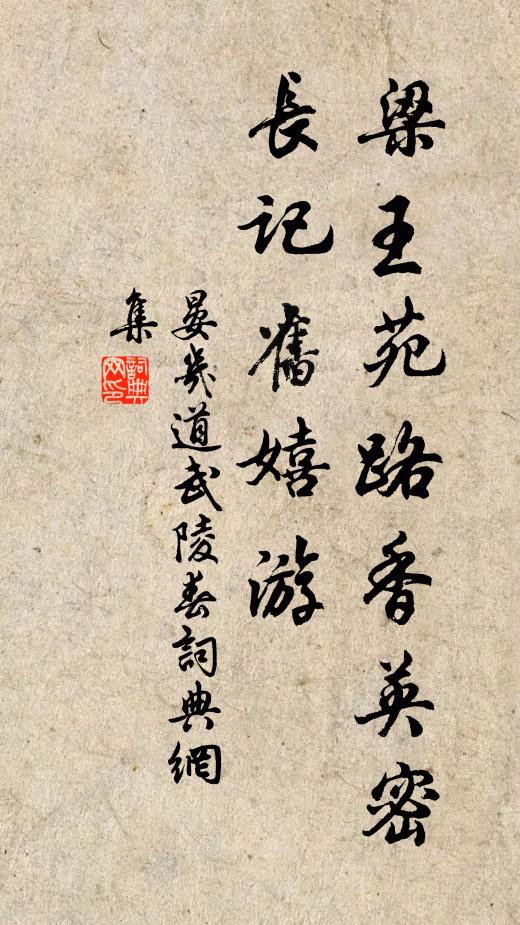 梁王苑路香英密
長記舊嬉游
晏幾道武陵春詞典網
集
詞典
网印